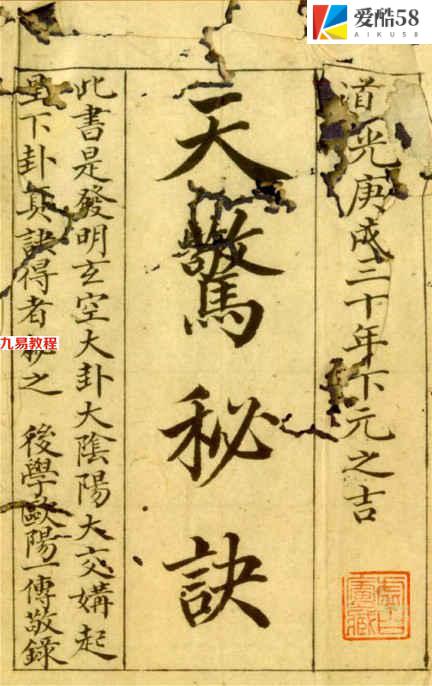 爱酷58
AIKU58
道光庚戌三十年下元之吉
虛白廬藏
天驚秘訣
此書是發明玄空大卦大陰陽大交媾起
星下卦真訣得者之 後學歐陽一傳敬錄
九易教程